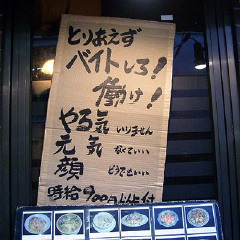 とりあえず
バイトしろ!
働け!
やる気 いりません
元気 なくていい
顔 どうでもいい
時給900円以上